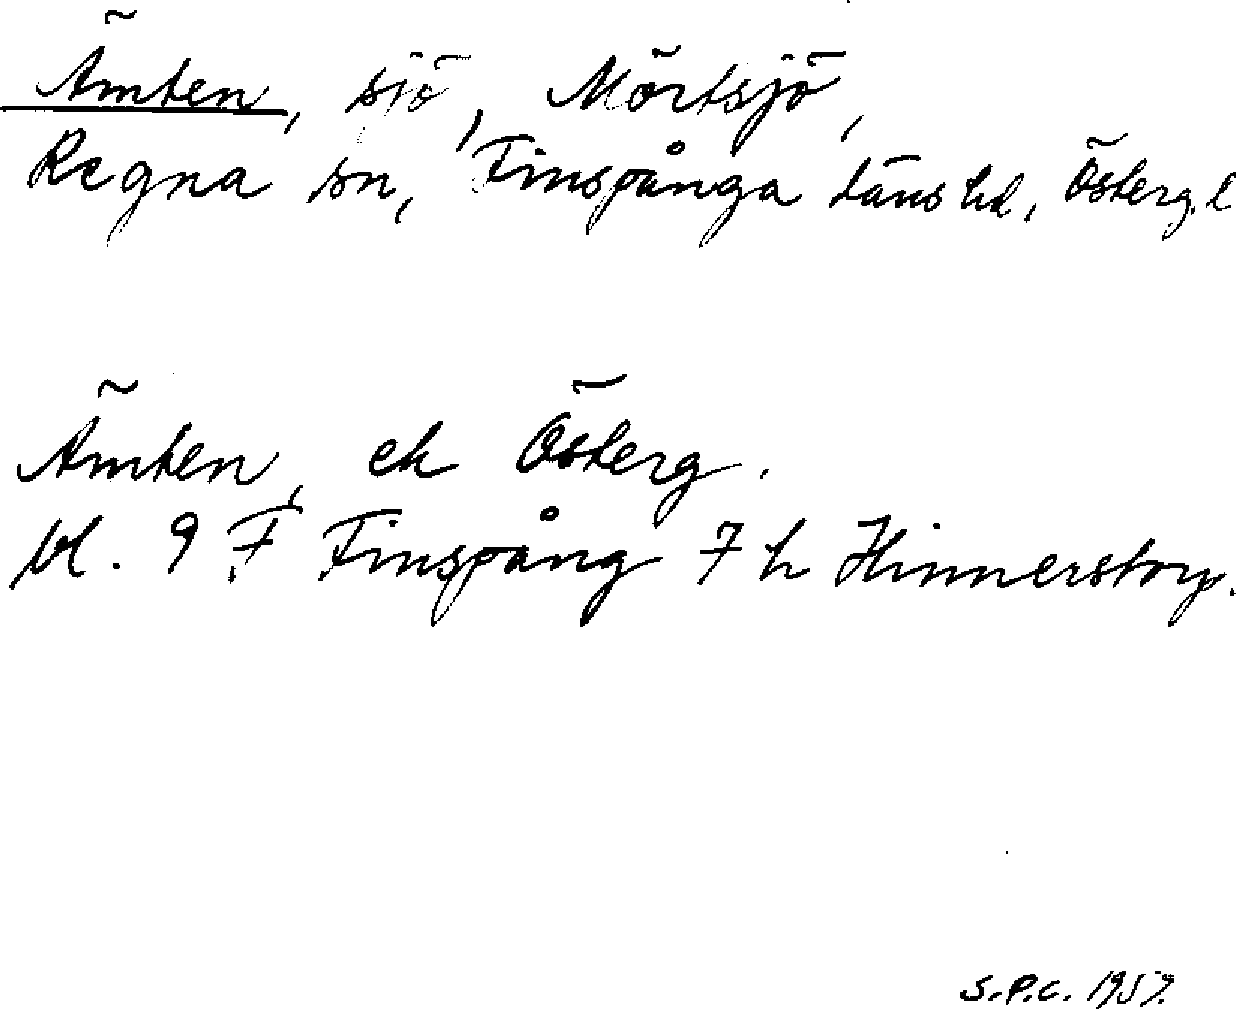 Ämten, sjö, Mörtsjö,
Regna sn, Finspånga läns hd, Österg. l
Ämten, ek Österg.
bl. 9 F Finspång 7 h Hinnerstorp.
S.P.C. 1957.